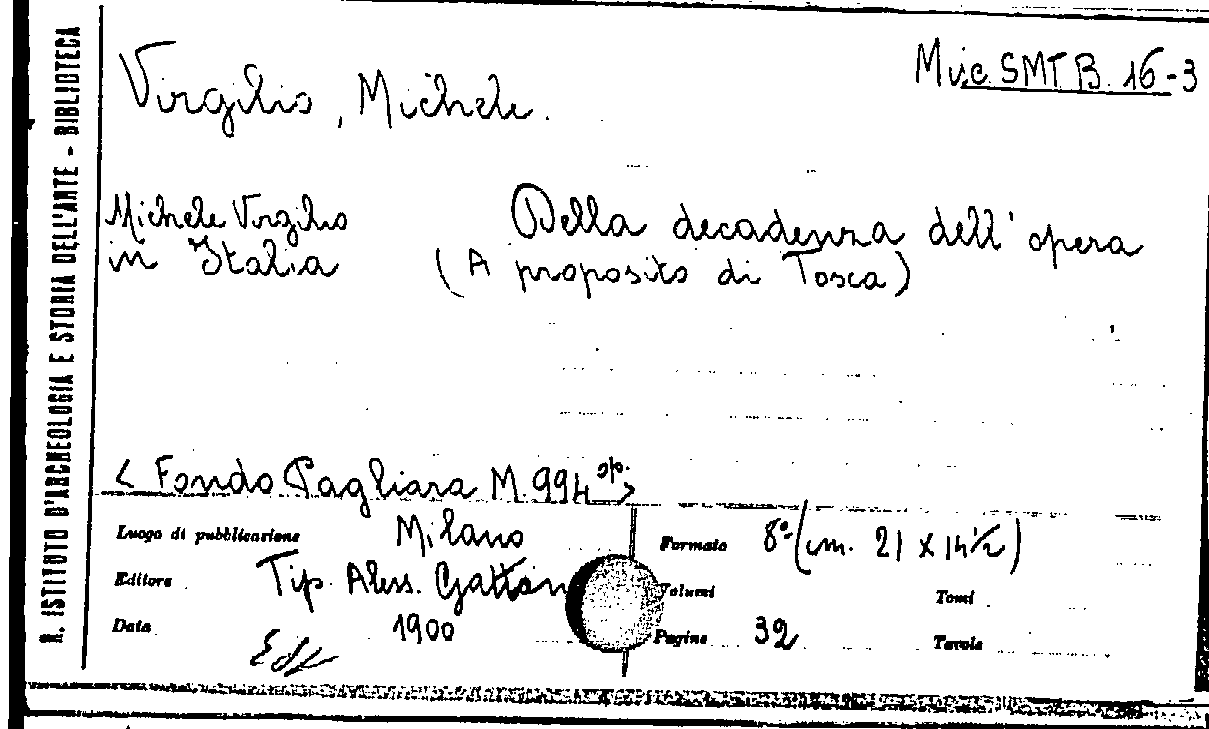 R. ISTITUTO D'ARCHEOLOGIA E STORIA DELL'ARTE - BIBLIOTECA
Virgilio, Michele.
Misc. SMT B. 16-3
Michele Virgilio Della decadenza dell'opera
in Italia (A proposito di Tosca)
< Fondo Pagliara M. 994 op. >
Luogo di pubblicazione Milano
Editore Tip. Aless. Gattin
Data 1900
Formato 8º (cm. 21 x 14½)
Volumi Tomi
Pagine 32 Tavole